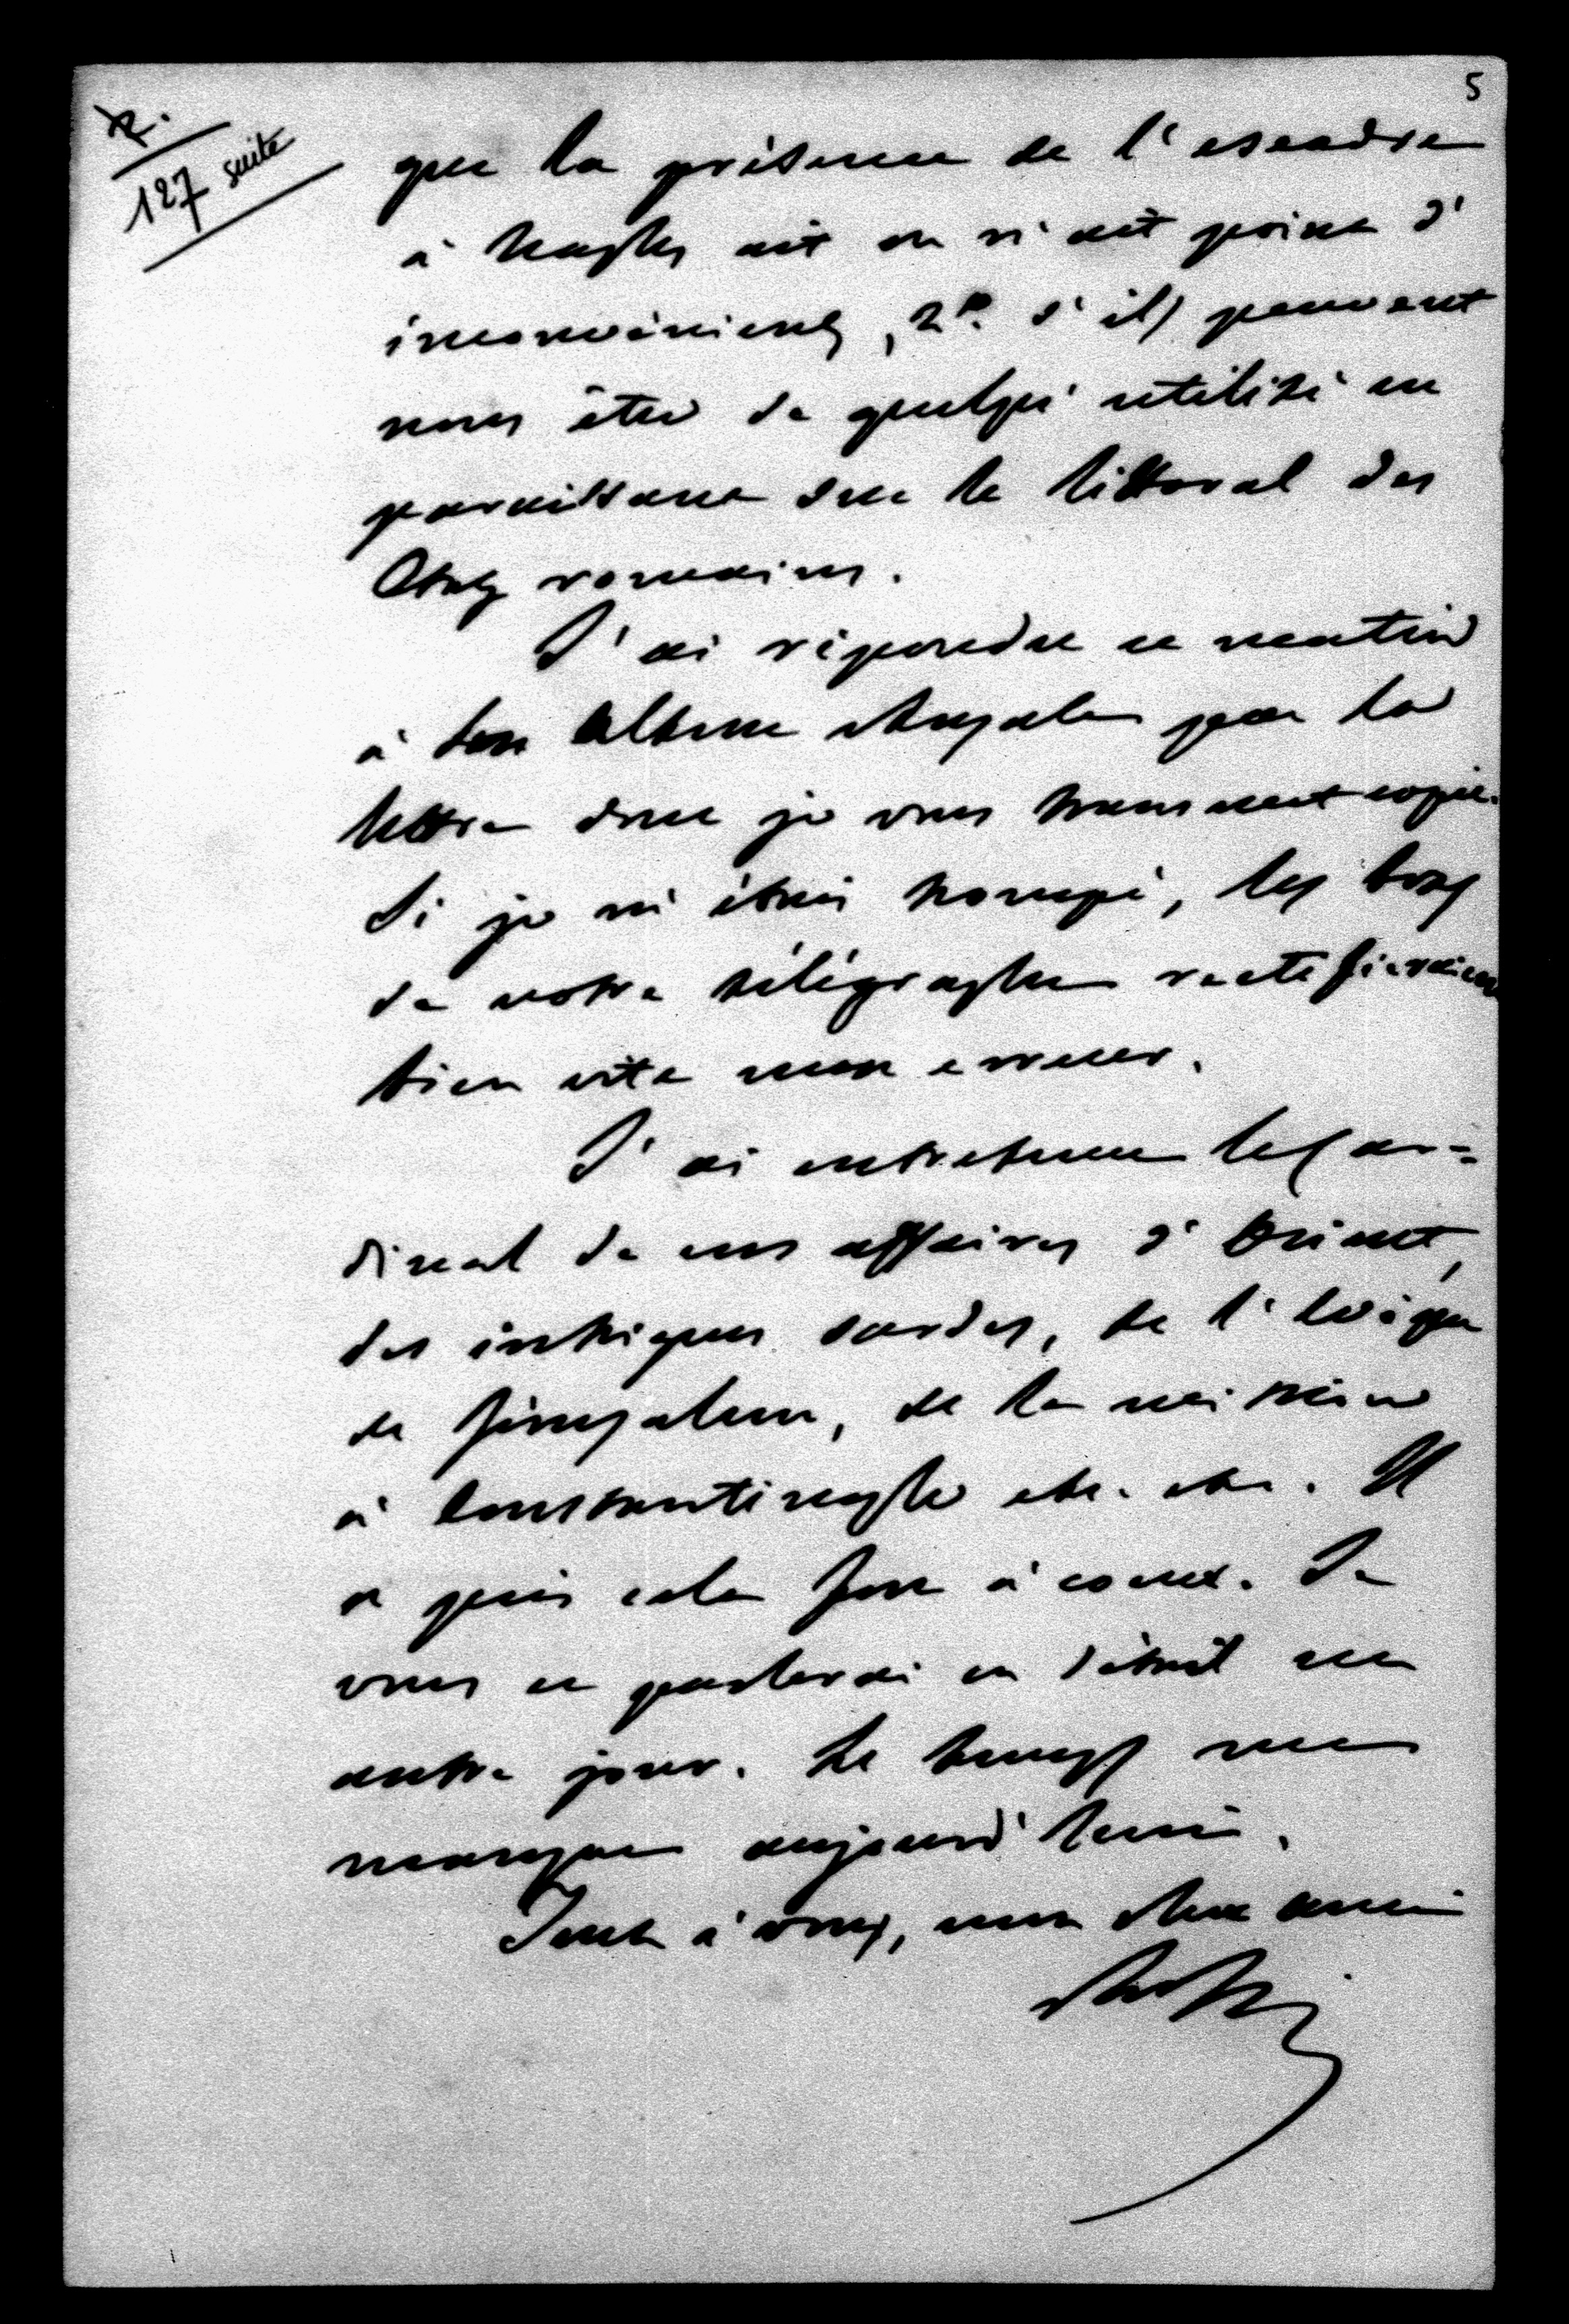 5
127 suite
que la présence de l'escadre
à Naples ait ou n'ait point d'
inconvénients, 2º. s'ils peuvent
nous être de quelqu'utilité en
paraissant sur le littoral des
Etats romains.
J'ai répondu ce matin
à Son Altesse Royale par la
lettre dont je vous transmet copie.
Si je m'étais trompé, les bras
de votre télégraphe rectifieraient
bien vite mon erreur.
J'ai entretenu le Car=
dinal de nos affaires d'Orient,
des intrigues sardes, de l'Evêque
de Jérusalem, de la mission
à Constantinople etc. etc. Il
a pris cela fort à coeur. Je
vous en parlerai en détail un
autre jour. Le temps me
manque aujourd'hui.
Tout à vous, mon cher ami
Rossi